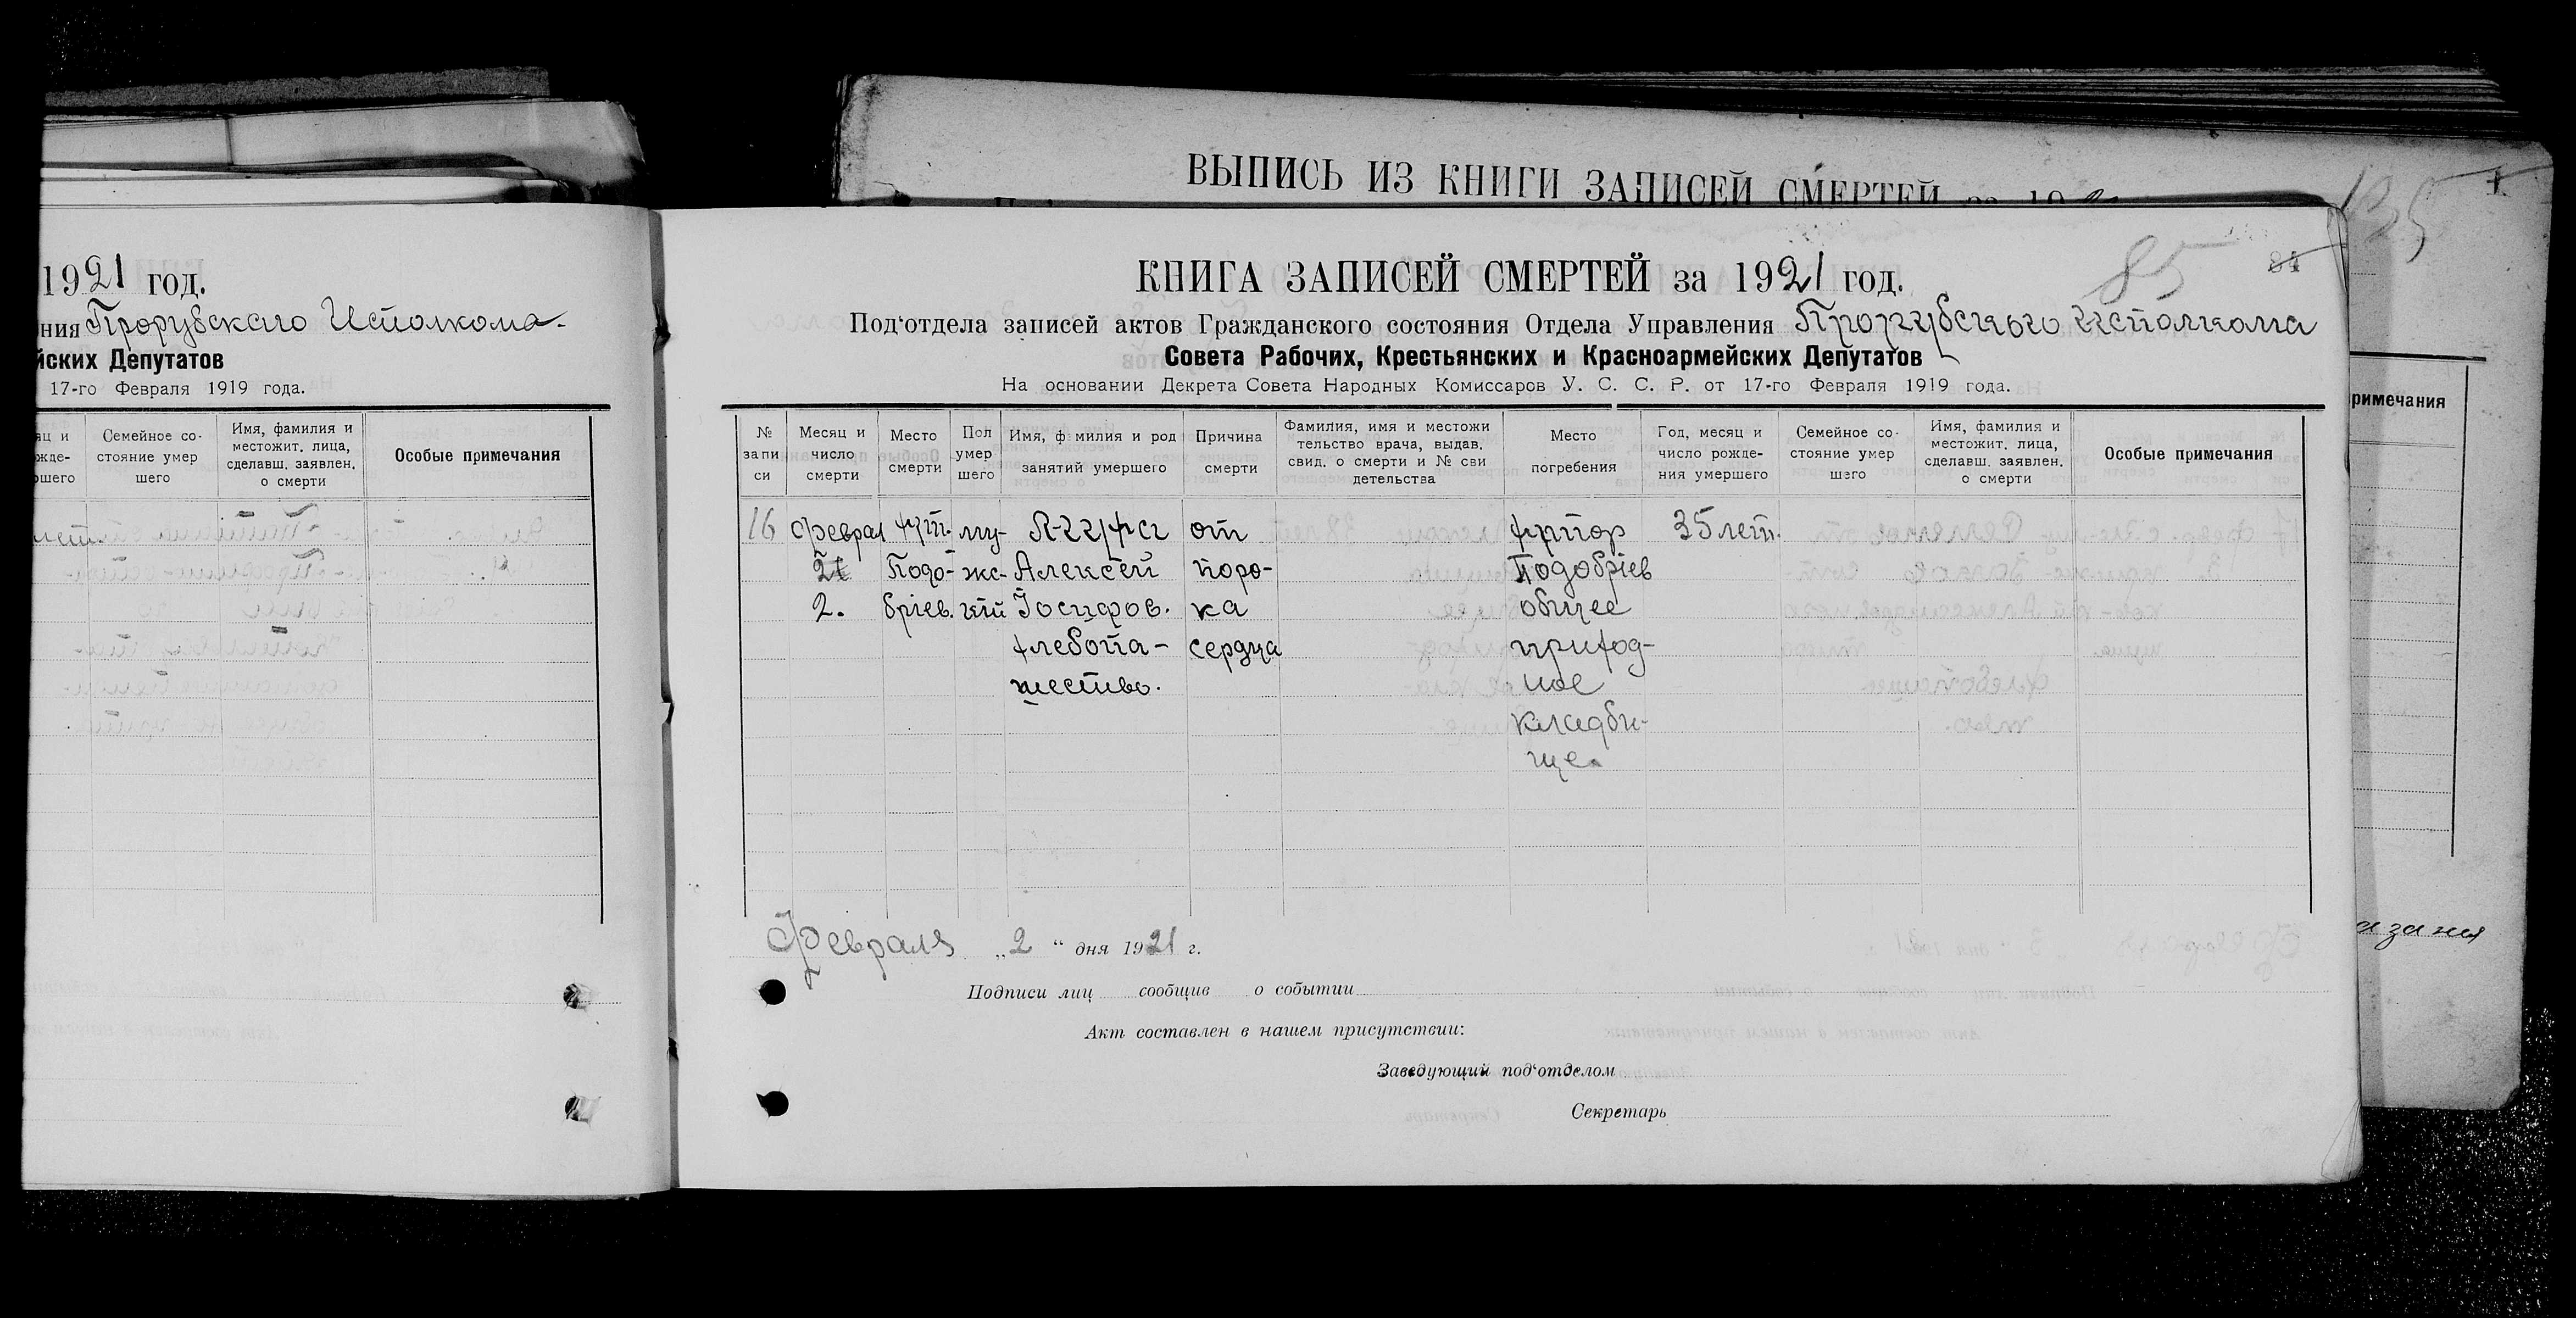 ВЫПИСЬ ИЗ КНИГИ ЗАПИСЕЙ СМЕРТЕЙ за 192
135
1921 год.
ния Прорубскаго Исполкома.
йских Депутатов
17-го Февраля 1919 года.
яц и
жде-
ршего
Семейное со-
стояние умер
шего
Имя, фамилия и
местожит. лица,
сделавш. заявлен.
о смерти
Особые примечания
85
84
КНИГА ЗАПИСЕЙ СМЕРТЕЙ за 1921 год.
Под'отдела записей актов Гражданского состояния Отдела Управления Прорубского исполкома
Совета Рабочих, Крестьянских и Красноармейских Депутатов
На основании Декрета Совета Народных Комиссаров У. С. С. Р. от 17-го Февраля 1919 года.
№
запи
си
Месяц и
число
смерти
Место
смерти
Пол
умер
шего
Имя, фамилия и род
занятий умершего
Причина
смерти
Фамилия, имя и местожи
тельство врача, выдав.
свид. о смерти и № сви
детельства
Место
погребения
Год, месяц и
число рожде-
ния умершего
Семейное со-
стояние умер
шего
Имя, фамилия и
местожит. лица,
сделавш. заявлен.
о смерти
Особые примечания
16
Феврал
2.
хут.
Подо-
бріев.
му-
жс-
кій
Алексей
Іосифов.
хлебопа-
шество.
от
поро-
ка
сердца
хутор
Подобріев
общее
приход-
ное
кладби-
ще.
35 лет.
Февраля „2“ дня 1921 г.
Подписи лиц сообщив о событии
Акт составлен в нашем присутствии:
Заведующий под'отделом
Секретарь
римечания